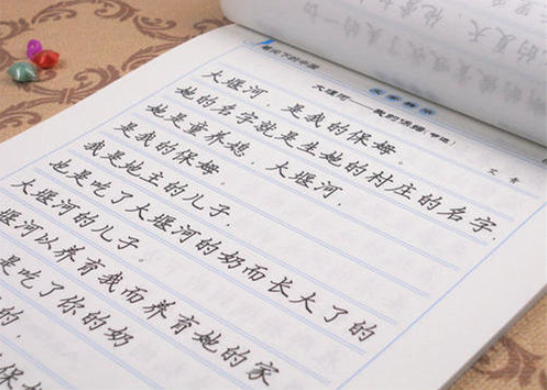 大堰河——我的保姆(节选)
艾青
大堰河，是我的保姆。
她的名字就是生她的村庄的名字，
她是童养媳，大堰河，
是我的保姆。
我是地主的儿子，
也是吃了大堰河的奶而长大了的
大堰河的儿子。
堰河以养育我而养育她的家
是吃了你的奶
的，